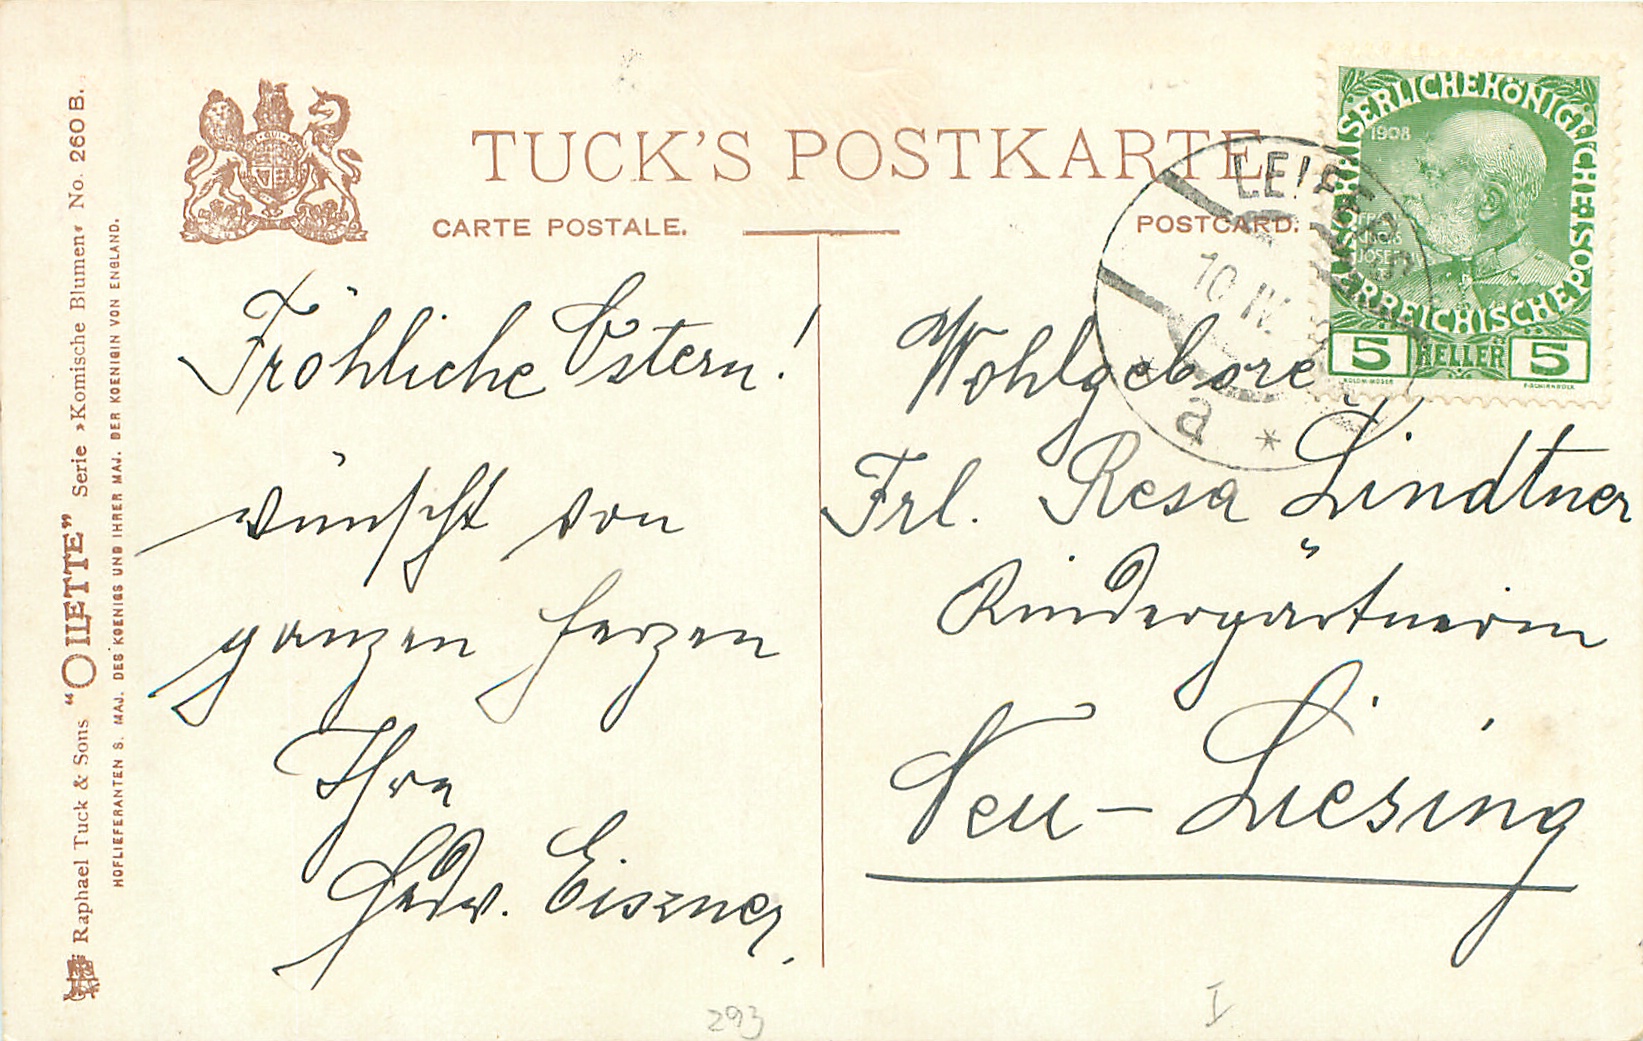 TUCK'S POSTKARTE
CARTE POSTALE.
POSTCARD.
Fröhliche Ostern!
wünscht von
ganzen Herzen
Ihre
Hedw. Eiszner.
Wohlgebore
Frl. Resa Lindtner
Kindergärtnerin
Neu-Liesing
KAISERLICHE KÖNIGLICHE ÖSTERREICHISCHE POST
1908
FRANZ
JOSEF
5 HELLER 5
10 IV
a
Raphael Tuck & Sons "OILETTE" Serie »Komische Blumen« No. 260 B.
HOFLIEFERANTEN S. MAJ. DES KOENIGS UND IHRER MAJ. DER KOENIGIN VON ENGLAND.
293
I